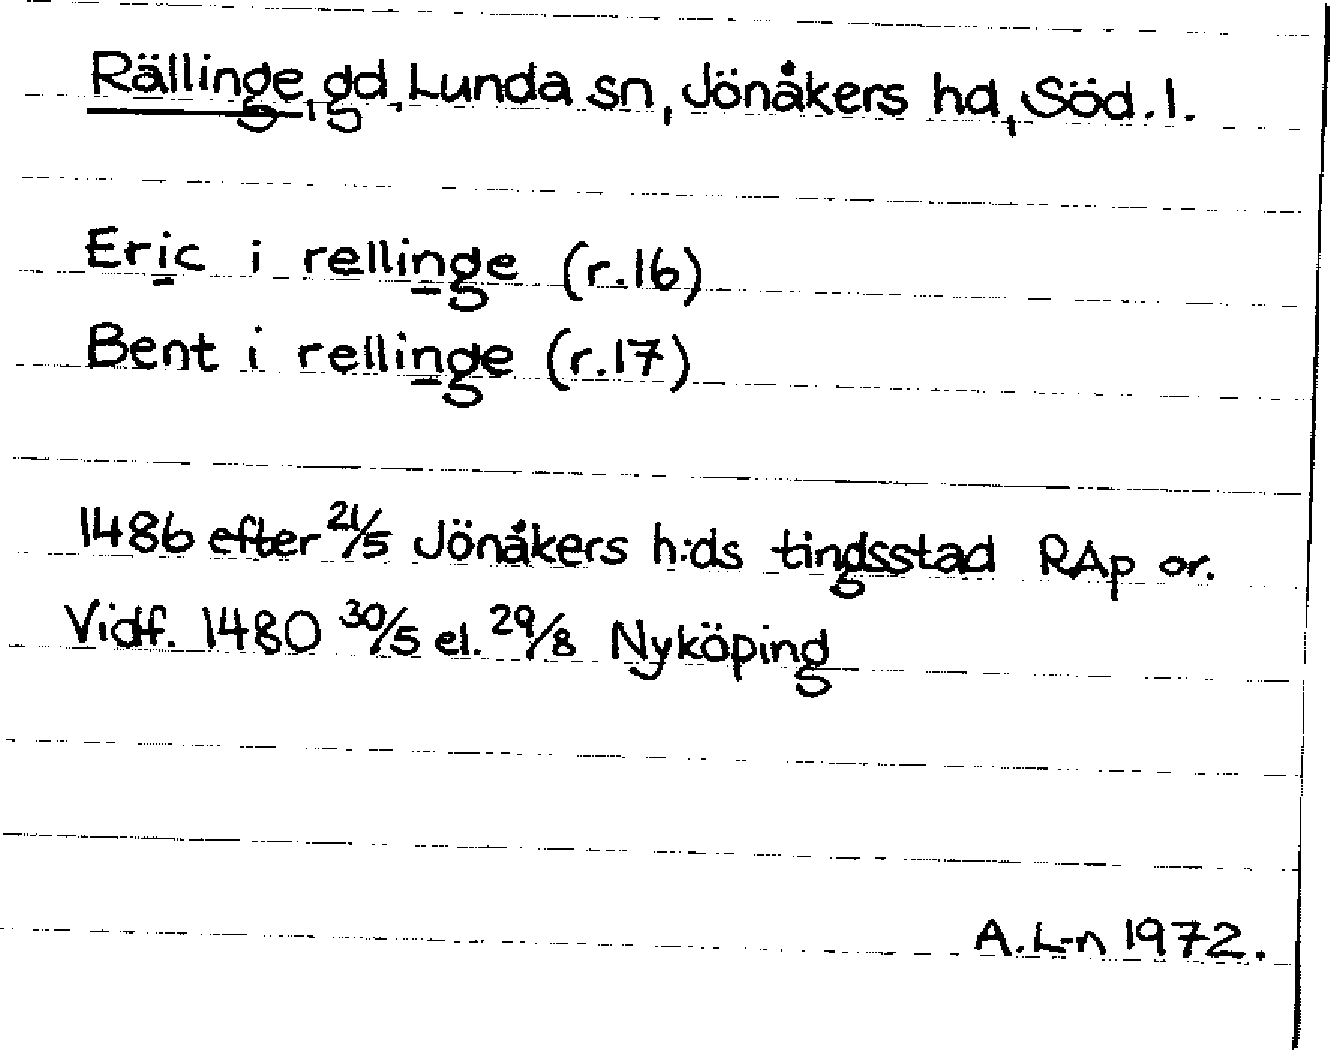 Rällinge, gd, Lunda sn, Jönåkers hd, Söd.l.
Eric i rellinge (r.16)
Bent i rellinge (r.17)
1486 efter 21/5 Jönåkers h:ds tingsstad RAp or.
Vidf. 1480 30/5 el. 29/8 Nyköping
A.L-n 1972.